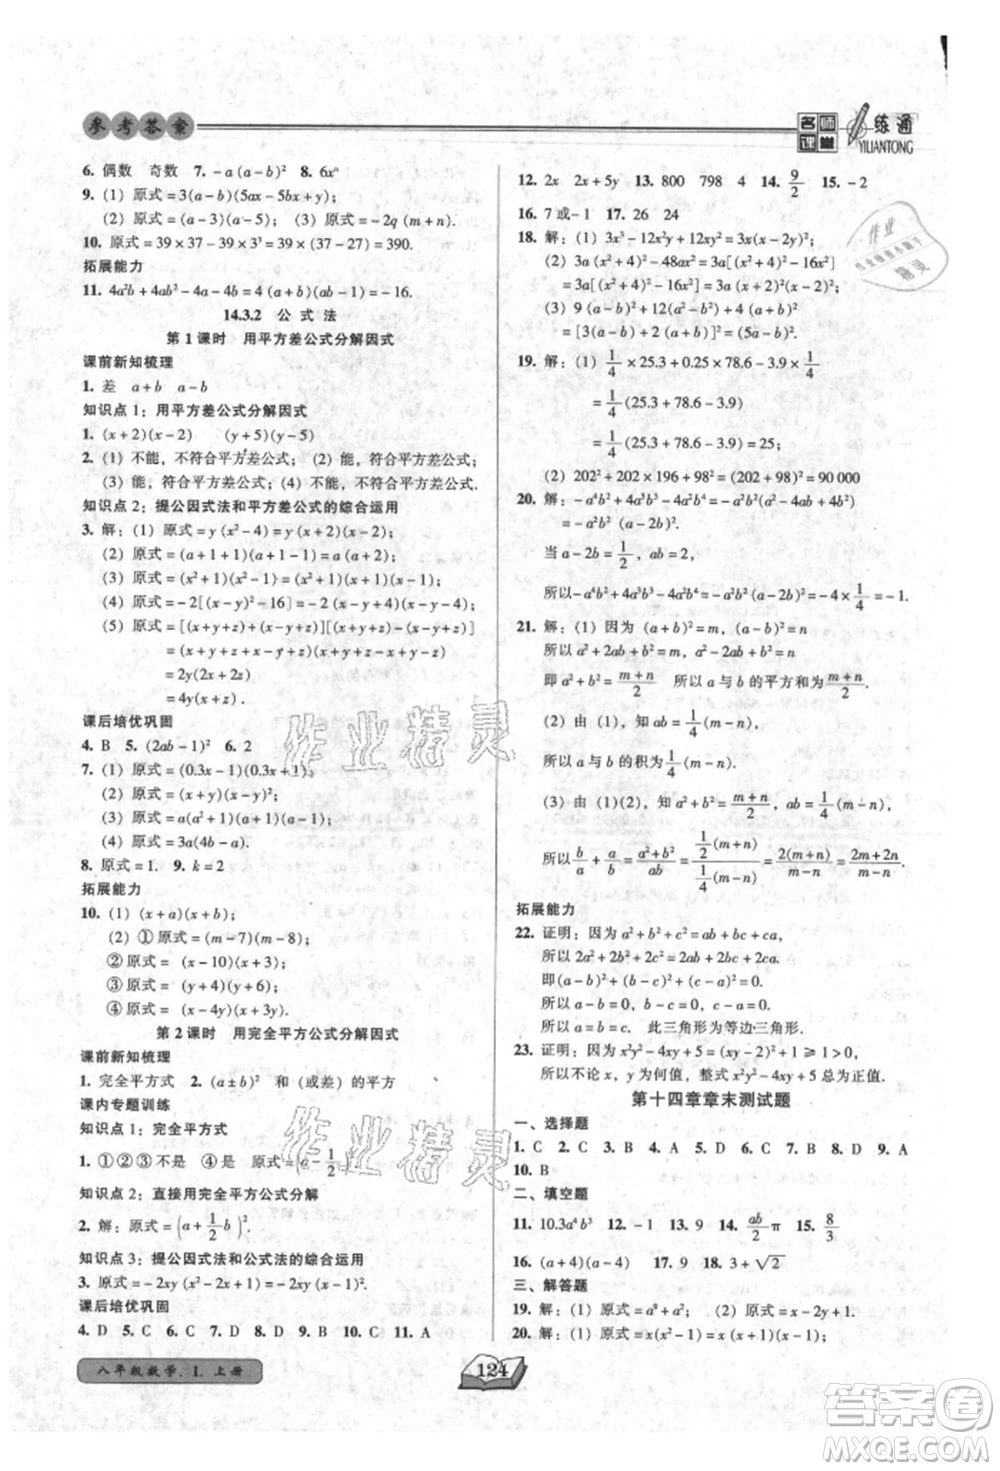 参考答案
名师课堂 一练通
YILIANTONG
6. 偶数 奇数 7. －a(a－b)² 8. 6xⁿ
9. (1) 原式＝3(a－b)(5ax－5bx＋y);
(2) 原式＝(a－3)(a－5); (3) 原式＝－2q(m＋n).
10. 原式＝39×37－39×3³＝39×(37－27)＝390.
拓展能力
11. 4a²b＋4ab²－4a－4b＝4(a＋b)(ab－1)＝－16.
14.3.2 公式法
第1课时 用平方差公式分解因式
课前新知梳理
1. 差 a＋b a－b
知识点1：用平方差公式分解因式
1. (x＋2)(x－2) (y＋5)(y－5)
2. (1) 不能，不符合平方差公式；(2) 能，符合平方差公式；
(3) 能，符合平方差公式；(4) 不能，不符合平方差公式.
知识点2：提公因式法和平方差公式的综合运用
3. 解：(1) 原式＝y(x²－4)＝y(x＋2)(x－2);
(2) 原式＝(a＋1＋1)(a＋1－1)＝a(a＋2);
(3) 原式＝(a²＋1)(a＋1)(a－1);
(4) 原式＝－2[(x－y)²－16]＝－2(x－y＋4)(x－y－4);
(5) 原式＝[(x＋y＋z)＋(x－y＋z)][(x＋y＋z)－(x－y＋z)]
＝(x＋y＋z＋x－y＋z)(x＋y＋z－x＋y－z)
＝2y(2x＋2z)
＝4y(x＋z).
课后培优巩固
4. B 5. (2ab－1)² 6. 2
7. (1) 原式＝(0.3x－1)(0.3x＋1);
(2) 原式＝(x＋y)(x－y)²;
(3) 原式＝a(a²＋1)(a＋1)(a－1);
(4) 原式＝3a(4b－a).
8. 原式＝1. 9. k＝2
拓展能力
10. (1) (x＋a)(x＋b);
(2) ①原式＝(m－7)(m－8);
②原式＝(x－10)(x＋3);
③原式＝(y＋4)(y＋6);
④原式＝(x－4y)(x＋3y).
第2课时 用完全平方公式分解因式
课前新知梳理
1. 完全平方式 2. (a±b)² 和（或差）的平方
课内专题训练
知识点1：完全平方式
1. ①②③不是 ④是 原式＝(a－1/2)²
知识点2：直接用完全平方公式分解
2. 解：原式＝(a＋1/2b)².
知识点3：提公因式法和公式法的综合运用
3. 原式＝－2xy(x²－2xy＋y²)＝－2xy(x－y)².
课后培优巩固
4. D 5. C 6. A 7. D 8. D 9. D 10. C 11. A
12. 2x 2x＋5y 13. 800 798 4 14. 9/2 15. －2
16. 7或－1 17. 26 24
18. 解：(1) 3x³－12x²y＋12xy²＝3x(x－2y)²;
(2) 3a(a²＋4)²－48ax²＝3a[(a²＋4)²－16a²]
＝3a(a²＋4＋4a)(a²＋4－4a)＝3a(a＋2)²(a－2)²;
(3) 9(a－b)²＋12(a²－b²)＋4(a＋b)²
＝[3(a－b)＋2(a＋b)]²＝(5a－b)².
19. 解：(1) 1/4×25.3＋0.25×78.6－3.9×1/4
＝1/4(25.3＋78.6－3.9)
＝1/4(25.3＋78.6－3.9)＝25;
(2) 202²＋202×196＋98²＝(202＋98)²＝90 000
20. 解：－a⁴b²＋4a³b³－4a²b⁴＝－a²b²(a²－4ab＋4b²)
＝－a²b²(a－2b)².
当a－2b＝1/2，ab＝2，
所以－a⁴b²＋4a³b³－4a²b⁴＝－a²b²(a－2b)²＝－4×1/4＝－1.
21. 解：(1) 因为(a＋b)²＝m，(a－b)²＝n
所以a²＋b²＋2ab＝m，a²＋b²－2ab＝n
即a²＋b²＝(m＋n)/2 所以a与b的平方和为(m＋n)/2.
(2) 由(1)，可知：ab＝1/4(m－n)，
所以a与b的积为1/4(m－n);
(3) 由(1)(2)，可知a²＋b²＝(m＋n)/2，ab＝1/4(m－n)
所以b/a＋a/b＝(a²＋b²)/ab＝(1/2(m＋n))/(1/4(m－n))＝2(m＋n)/(m－n)＝(2m＋2n)/(m－n).
拓展能力
22. 证明：因为a²＋b²＋c²＝ab＋bc＋ca，
所以2a²＋2b²＋2c²＝2ab＋2bc＋2ca.
即(a－b)²＋(b－c)²＋(c－a)²＝0
所以a＝b＝c， 此三角形为等边三角形.
23. 证明：因为x²y²－2xy＋3＝(xy－1)²＋2≥2
所以不论x，y为何值，整式x²y²－2xy＋3总为正值.
第十四章章末测试题
一、选择题
1. C 2. C 3. B 4. A 5. D 6. C 7. B 8. D 9. A
10. B
二、填空题
11. 10.3a⁴b³ 12. －1 13. 9 14. ab/2 π 15. 8/3
16. (a＋4)(a－4) 17. 9 18. 3＋√2
三、解答题
19. 解：(1) 原式＝a⁹＋a² (2) 原式＝x－2y;
20. 解：(1) 原式＝x(x＋y)(x－y);
八年级数学．1．上册
124
作业精灵
作业精灵
作业
精灵
答案圈
MXQE.COM